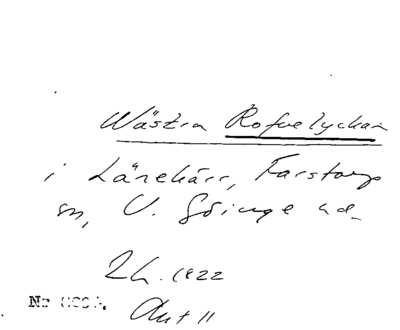 Wästra Rofvelyckan
i Lärekärr, Farstorps
sn, V. Göinge hd
2h. 1822
Nr
Ant 11